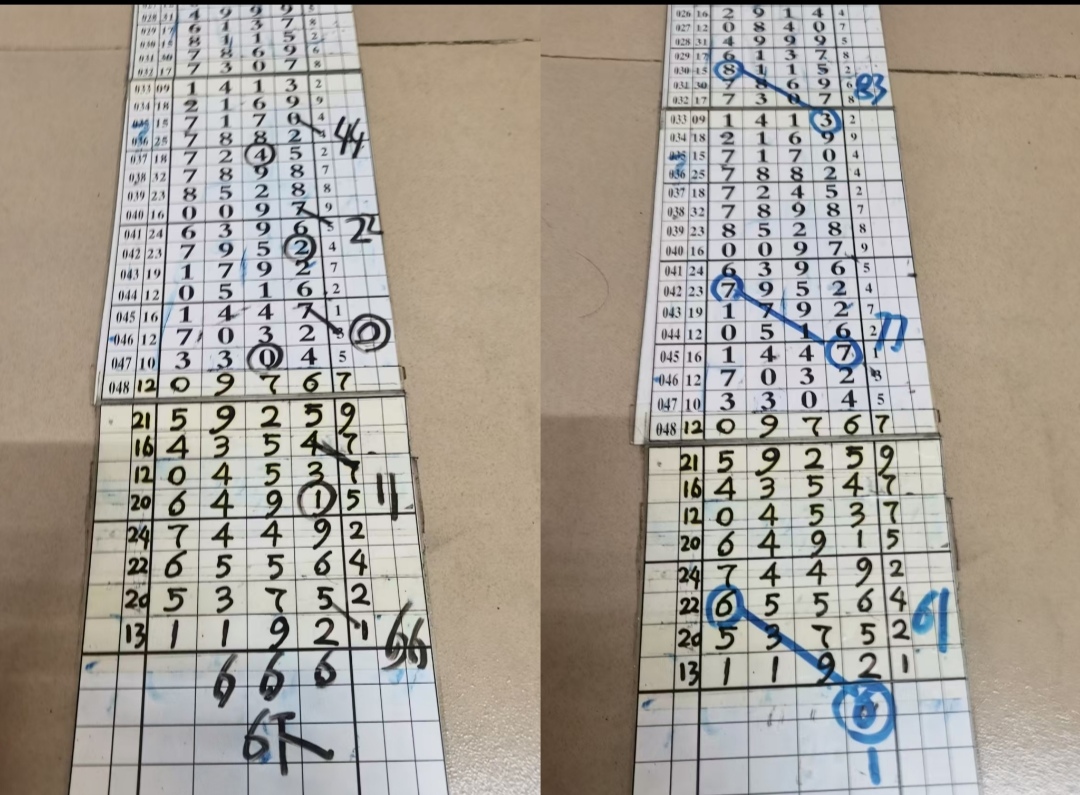 028 31 4 9 9 9 5
029 17 6 1 3 7 8
030 15 8 1 1 5 2
031 30 7 8 6 9 6
032 17 7 3 0 7 8
033 09 1 4 1 3 2
034 18 2 1 6 9 9
035 15 7 1 7 0 4
036 25 7 8 8 2 4 44
037 18 7 2 4 5 2
038 32 7 8 9 8 7
039 23 8 5 2 8 8
040 16 0 0 9 7 9
041 24 6 3 9 6 5 22
042 23 7 9 5 2 4
043 19 1 7 9 2 7
044 12 0 5 1 6 2
045 16 1 4 4 7 1
046 12 7 0 3 2 8 0
047 10 3 3 0 4 5
048 12 0 9 7 6 7
21 5 9 2 5 9
16 4 3 5 4 7
12 0 4 5 3 7
20 6 4 9 1 5 11
24 7 4 4 9 2
22 6 5 5 6 4
20 5 3 7 5 2
13 1 1 9 2 1 66
6 6 6
6T
026 16 2 9 1 4 4
027 12 0 8 4 0 7
028 31 4 9 9 9 5
029 17 6 1 3 7 8
030 15 8 1 1 5 2
031 30 7 8 6 9 6 83
032 17 7 3 0 7 8
033 09 1 4 1 3 2
034 18 2 1 6 9 9
035 15 7 1 7 0 4
036 25 7 8 8 2 4
037 18 7 2 4 5 2
038 32 7 8 9 8 7
039 23 8 5 2 8 8
040 16 0 0 9 7 9
041 24 6 3 9 6 5
042 23 7 9 5 2 4
043 19 1 7 9 2 7
044 12 0 5 1 6 2 77
045 16 1 4 4 7 1
046 12 7 0 3 2 8
047 10 3 3 0 4 5
048 12 0 9 7 6 7
21 5 9 2 5 9
16 4 3 5 4 7
12 0 4 5 3 7
20 6 4 9 1 5
24 7 4 4 9 2
22 6 5 5 6 4 61
20 5 3 7 5 2
13 1 1 9 2 1
1